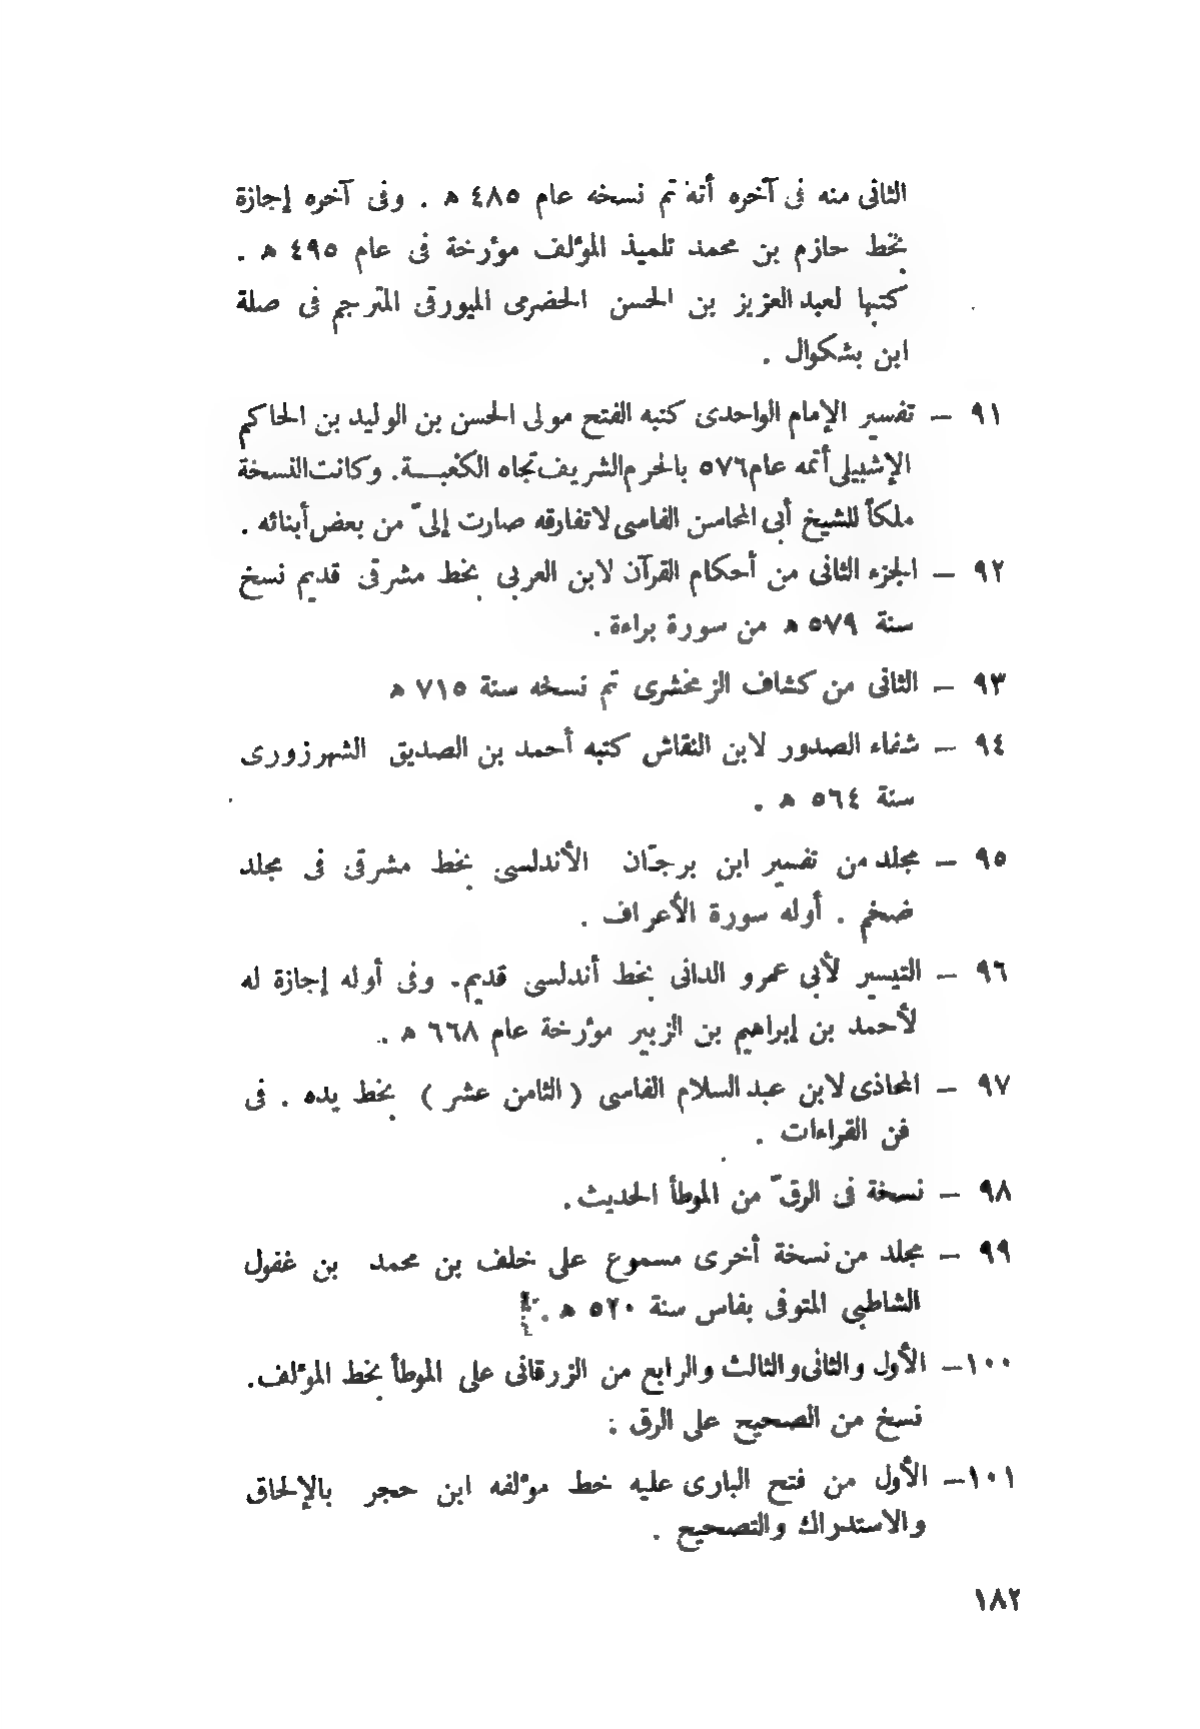 الثانى منه فى آخره أنه تم نسخه عام ٤٨٥ ه . وفى آخره إجازة
بخط حازم بن محمد تلميذ المؤلف مؤرخة فى عام ٤٩٥ ه .
كتبها لعبد العزيز بن الحسن الحضرمى الميورقى المترجم فى صلة
ابن بشكوال .
٩١ – تفسير الإمام الواحدى كتبه الفتح مولى الحسن بن الوليد بن الحاكم
الإشبيلى أتمه عام ٥٧٦ بالحرم الشريف تجاه الكعبــة. وكانت النسخة
ملكاً للشيخ أبى المحاسن الفاسى لا تفارقه صارت إلىّ من بعض أبنائه .
٩٢ – الجزء الثانى من أحكام القرآن لابن العربى بخط مشرقى قديم نسخ
سنة ٥٧٩ ه من سورة براءة .
٩٣ – الثانى من كشاف الزمخشرى تم نسخه سنة ٧١٥ ه
٩٤ – شفاء الصدور لابن النقاش كتبه أحمد بن الصديق الشهرزورى
سنة ٥٦٤ ه .
٩٥ – مجلد من تفسير ابن برجّان الأندلسى بخط مشرقى فى مجلد
ضخم . أوله سورة الأعراف .
٩٦ – التيسير لأبى عمرو الدانى بخط أندلسى قديم. وفى أوله إجازة له
لأحمد بن إبراهيم بن الزبير مؤرخة عام ٦٦٨ ه .
٩٧ – المحاذى لابن عبد السلام الفاسى ( الثامن عشر ) بخط يده . فى
فن القراءات .
٩٨ – نسخة فى الرقّ من الموطأ الحديث.
٩٩ – مجلد من نسخة أخرى مسموع على خلف بن محمد بن غفول
الشاطبى المتوفى بفاس سنة ٥٢٠ ه .
١٠٠– الأول والثانى والثالث والرابع من الزرقانى على الموطأ بخط المؤلف.
نسخ من الصحيح على الرق :
١٠١– الأول من فتح البارى عليه خط مؤلفه ابن حجر بالإلحاق
والاستدراك والتصحيح .
١٨٢